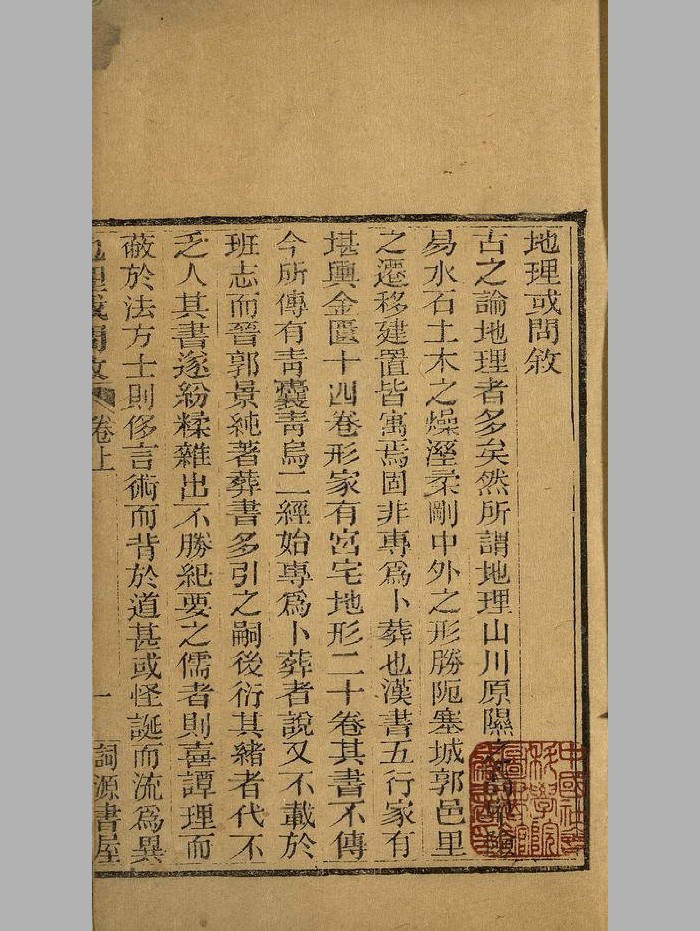 地理或問敘
古之論地理者多矣然所謂地理山川原隰之
易水石土木之燥溼柔剛中外之形勝阨塞城郭邑里
之遷移建置皆寓焉固非專爲卜葬也漢書五行家有
堪輿金匱十四卷形家有宮宅地形二十卷其書不傳
今所傳有靑囊靑烏二經始專爲卜葬者說又不載於
班志而晉郭景純著葬書多引之嗣後衍其緒者代不
乏人其書遂紛糅雜出不勝紀要之儒者則喜譚理而
蔽於法方士則侈言術而背於道甚或怪誕而流爲異
地理或問敘 卷上 一 詞源書屋
中國社
科學院